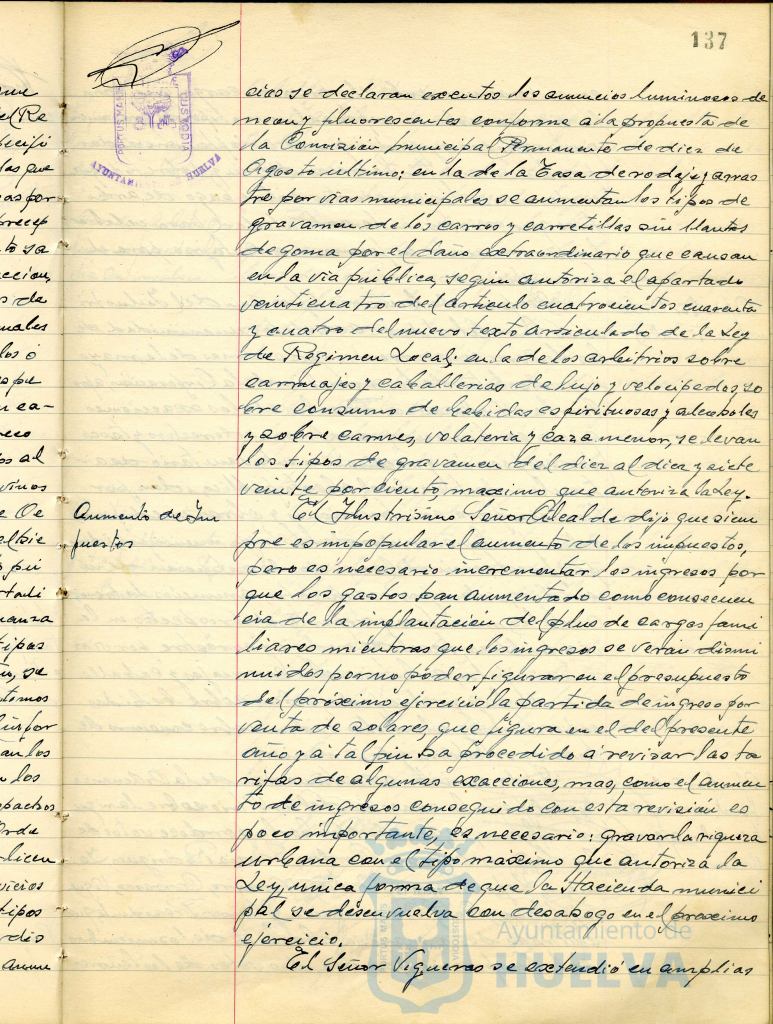 137
cios se declaran exentos los anuncios luminosos de
neon y fluorescentes conforme a la propuesta de
la Comisión municipal Permanente de diez de
Agosto último; en la de la Tasa de rodaje y arras
tre por vias municipales se aumentan los tipos de
gravamen de los carros y carretillas sin llantas
de goma por el daño extraordinario que causan
en la via publica, según autoriza el apartado
veinticuatro del articulo cuatrocientos cuarenta
y cuatro del nuevo texto articulado de la Ley
de Regimen Local; en la de los arbitrios sobre
carruajes y caballerias de lujo y velocipedos, so
bre consumo de bebidas espirituosas y alcoholes
y sobre carnes, volateria y caza menor, se elevan
los tipos de gravamen del diez al diez y siete
veinte por ciento, maximo que autoriza la Ley.
Aumento de Im
puestos
El Ilustrisimo Señor Alcalde dijo que siem
pre es impopular el aumento de los impuestos,
pero es necesario incrementar los ingresos por
que los gastos han aumentado como consecuen
cia de la implantación del plus de cargas fami
liares mientras que los ingresos se verán dismi
nuidos por no poder figurar en el presupuesto
del próximo ejercicio la partida de ingreso por
venta de solares, que figura en el del presente
año y á tal fin ha procedido a revisar las ta
rifas de algunas exacciones, mas, como el aumen
to de ingresos conseguido con esta revisión es
poco importante, es necesario: gravar la riqueza
urbana con el tipo máximo que autoriza la
Ley, unica forma de que la Hacienda munici
pal se desenvuelva con desahogo en el proximo
ejercicio.
El Señor Vigueras se extendió en amplias
PORTUS MARIS
CUSTODIA
AYUNTAMIENTO HUELVA
Ayuntamiento de
HUELVA